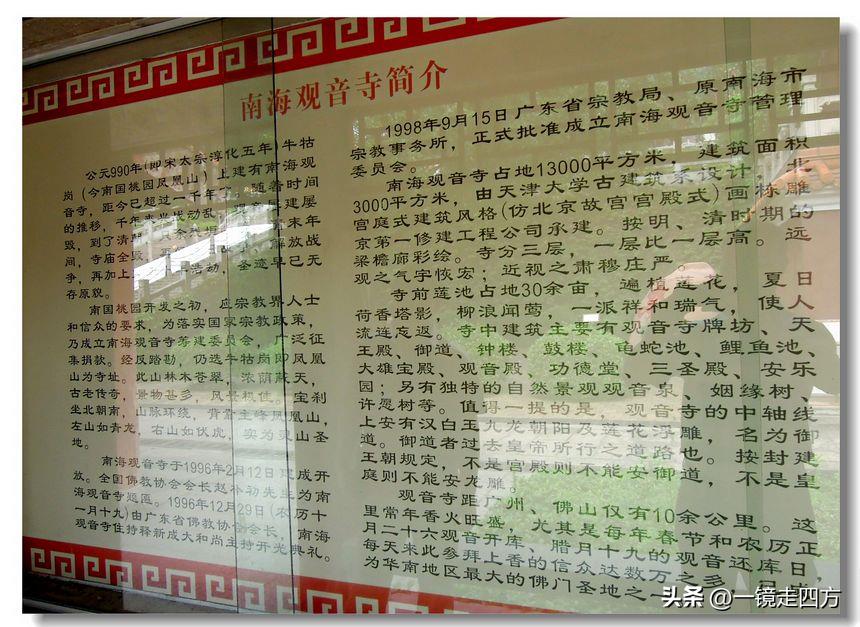 南海观音寺简介
公元990年(即宋太宗淳化五年)牛牯
岗（今南国桃园凤凰山）上建有南海观
音寺，距今已超过一千年了。随着时间
的推移，千年来兴战动乱，观音寺建屡
毁，到了清朝 末年
间，寺庙全毁 解放战
争，再加上 活动，圣迹早已无
存原貌。
南国桃园开发之初，应宗教界人士
和信众的要求，为落实国家宗教政策，
乃成立南海观音寺筹建委员会，广泛征
集捐款。经反踏勘，仍选牛牯岗即凤凰
山为寺址。此山林木苍翠，浓荫蔽天，
古老传奇，景物甚多，风景极佳。宝刹
坐北朝南，山脉环绕，背靠主峰凤凰山，
左山如青龙，右山如伏虎，实为灵山圣
地。
南海观音寺于1996年2月12日建成开
放。全国佛教协会会长赵朴初先生为南
海观音寺题匾。1996年12月29日(农历十
一月十九)由广东省佛教协会会长，南海
观音寺住持释新成大和尚主持开光典礼。
1998年9月15日广东省宗教局、原南海市
宗教事务所，正式批准成立南海观音寺管理
委员会。
南海观音寺占地13000平方米，建筑面积
3000平方米，由天津大学古建筑系设计，北
宫庭式建筑风格(仿北京故宫宫殿式)画栋雕
京第一修建工程公司承建。按明、清时期的
梁檐廊彩绘。寺分三层，一层比一层高。远
观之气宇恢宏；近视之肃穆庄严。
寺前莲池占地30余亩，遍植莲花，夏日
荷香塔影，柳浪闻莺，一派祥和瑞气，使人
流连忘返。寺中建筑主要有观音寺牌坊、天
王殿、御道、钟楼、鼓楼、龟蛇池、鲤鱼池、
大雄宝殿、观音殿、功德堂、三圣殿、安乐
园；另有独特的自然景观观音泉、姻缘树、
许愿树等。值得一提的是，观音寺的中轴线
上安有汉白玉九龙朝阳及莲花浮雕，名为御
道。御道者过去皇帝所行之道路也。按封建
王朝规定，不是宫殿则不能安御道，不是皇
庭则不能安龙雕。
观音寺距广州、佛山仅有10余公里。这
里常年香火旺盛，尤其是每年春节和农历正
月二十六观音开库、腊月十九的观音还库日，
每天来此参拜上香的信众达数万之多，已成
为华南地区最大的佛门圣地之一
头条 @一镜走四方